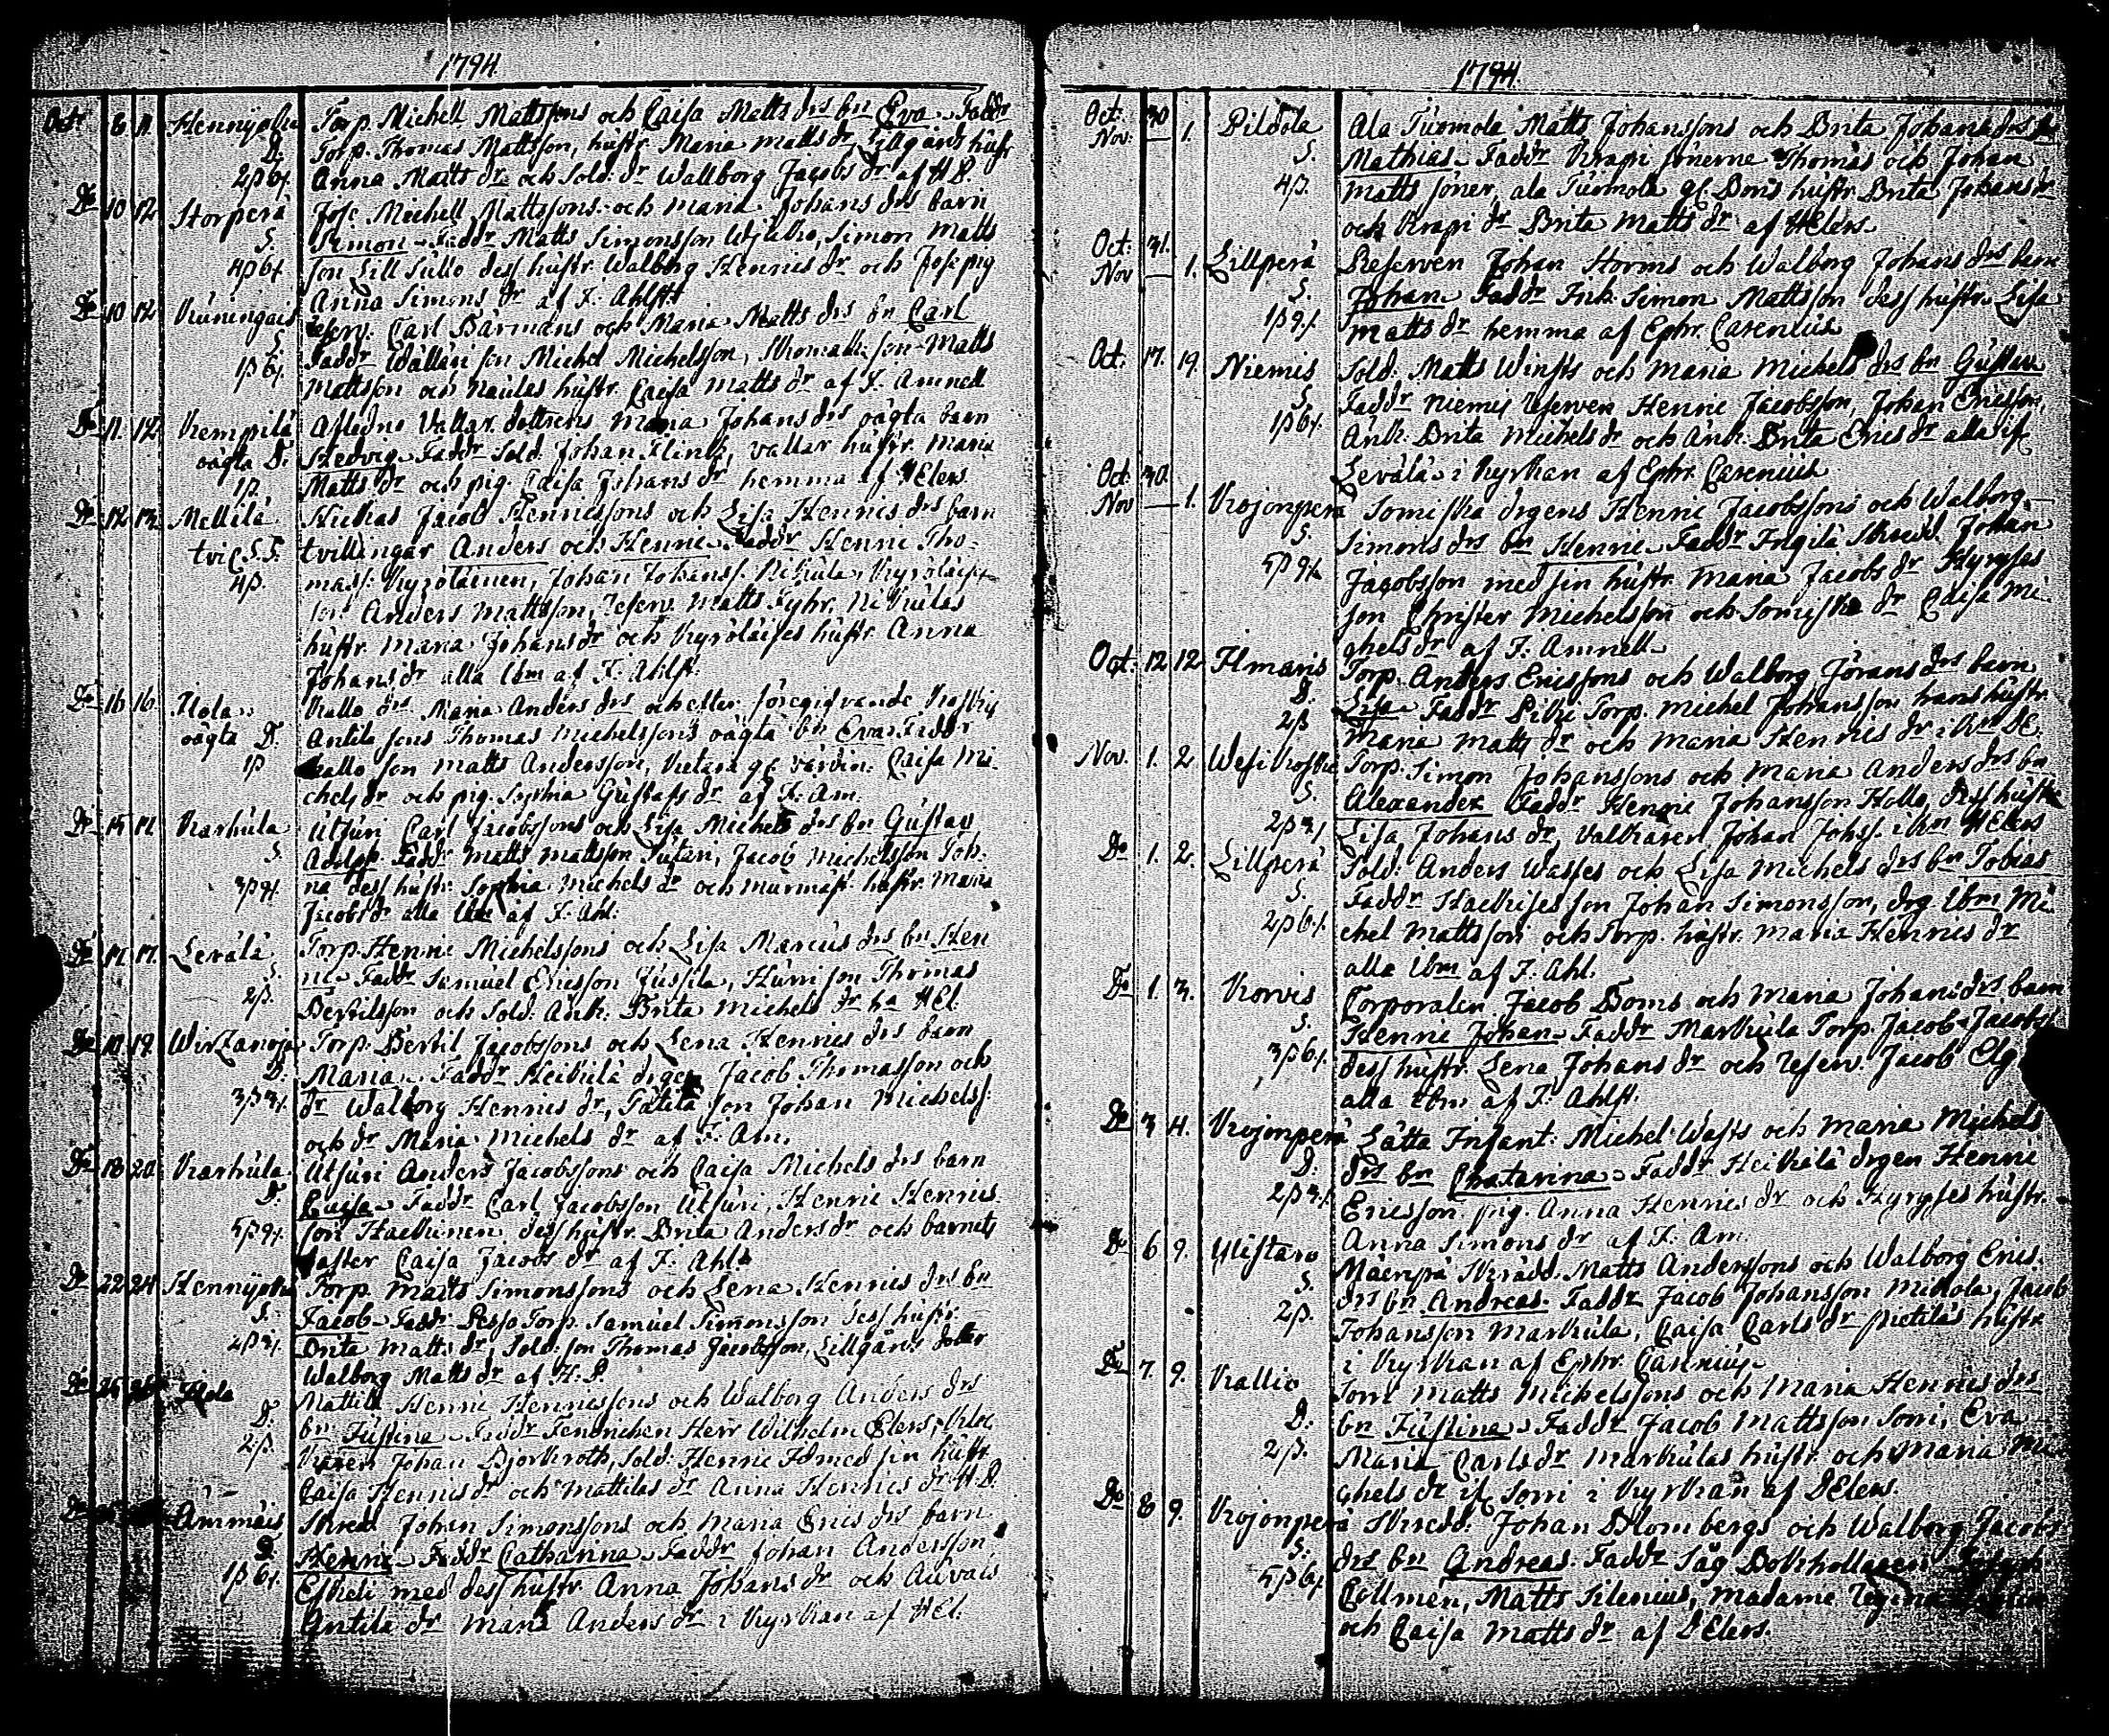 1794.
Oct. 6. 11. Hennijoki Torp. Michell Mattssons och Caisa Matts drs bn Eva. Faddr
D. Torp. Thomas Mattsson, hustr. Maria Matts dr, Lillgårds hustr
2β 6/. Anna Matts dr och Sold: dr Wallborg Jacobs dr af HP.
Do 10 12 Storperä Jose Michell Mattssons och Maria Johans drs barn
S. Simon Faddr Matts Simonsson, Simon Matts
4β 6/. son Lill Sullo dess hustr. Walborg Hennis dr och Jose pig
Anna Simons dr af J. Ahlst:
Do 10 12 Kuningais Reserv. Carl Bärmans och Maria Matts drs bn Carl
S. Faddr Wällari son Michel Michelsson, son Matts
1β 6/. Mattsson och Naulas hustr. Caisa Matts dr af J. Amnell
Do 11. 12. Kempilä Afledne Vallar dottrens Maria Johans drs oägta barn
oägta D. Hedvig. Faddr Sold. Johan Flink, vallar hustr. Maria
1β. Matts dr och pig. Caisa Johans dr hemma af HElers.
Do 12 13. Mellilä Huikas Jacob Hennissons och Lisa Hennis drs barn
tvil. S.S. tvillingar Anders och Henric. Faddr Henric Tho-
4β. mass. Kyröläinen, Johan Johanss. Kyröläise
son Anders Mattsson, Reserv. Matts Fyhr,
hustr. Maria Johans dr och Kyröläises hustr. Anna
Johans dr alla ibm af J. Ahlst:
Do 16 16. Ilola Kallo drs Maria Anders drs och efter föregifvande
oägta D. Antila sons Thomas Michelssons oägta bn Eva Faddr
1β Kallo son Matts Andersson, Caisa Mi-
chels dr och pig. Sophia Gustafs dr af J. Am.
Do 15 17. Karhula Utsuri Carl Jacobssons och Lisa Michels drs bn Gustav
S. Adolph. Faddr Matts Mattsson, Jacob Michelsson
3β 9/. dess hustr. Sophia Michels dr och murmäst. hustr. Maria
Jacobs dr alla ibm af J. Ahl:
Do 17. 17. Levälä Torp. Henric Michelssons och Lisa Marcus drs bn Hen
S. ric Faddr Samuel Ericsson Jussila, Hurri son Thomas
2β. Bertilsson och Sold. Änk. Brita Michels dr HEl.
Do 18 19. Wirzanoja Torp. Bertil Jacobssons och Lena Hennis drs barn
D. Maria. Faddr Heikilä drgen Jacob Thomasson och
3β 3/. dr Walborg Hennis dr, Tatila son Johan Michelss:
och dr Maria Michels dr af J. Am.
Do 18 20. Karhula Utsuri Anders Jacobssons och Caisa Michels drs barn
D. Caisa Faddr Carl Jacobsson Utsuri, Henric Hennis
5β 9/. son Hackinen dess hustr. Brita Anders dr och barnets
faster Caisa Jacobs dr af J. Ahl:
Do 22 24 Hennijoki Torp. Matts Simonssons och Lena Hennis drs bn
S. Jacob. Faddr Torp. Samuel Simonsson dess hustr.
2β 3/. Brita Matts dr, Sold: son Thomas Jacobsson, Lillgårds dotter
Walborg Matts dr af H.P.
Do Ilola Mattila Henric Hennissons och Walborg Anders drs
D. bn Justina. Faddr Fendrichen Herr Wilhelm Elers, kloc
2β. karen Johan Björkroth, Sold: Henric med sin hustr
Caisa Hennis dr och Mattilas dr Anna Hennis dr H.P.
Do Ammäis Skredd. Johan Simonssons och Maria Erics drs barn
D. Henric Faddr Catharina. Faddr Johan Andersson
1β 6/. Eskeli med dess hustr. Anna Johans dr och Auvais
Antila dr Maria Anders dr i Kyrkan af HEl.
1794.
Oct. 30 Pildola Ala Tuomola Matts Johanssons och Brita Johans drs
Nov: — 1. S. Mathias. Faddr Krapi sönerne Thomas och Johan
4β. Matts söner, ala Tuomola hustr. Brita Johans dr
och Krapi dr Brita Matts dr af HElers.
Oct. 31. Lillperä Reserven Johan Storms och Walborg Johans drs barn
Nov — 1. S. Johan Faddr Inh. Simon Mattsson dess hustr. Lisa
1β 9/. Matts dr hemma af Ephr. Carenius
Oct. 17. 19. Niemis Sold. Matts Winsts och Maria Michels drs bn Gustav
S. Faddr Niemis Reserven Henric Jacobsson, Johan Ericsson,
1β 6/. Änk. Brita Michels dr och Änk. Brita Erics dr alla if.
Levälä i Kyrkan af Ephr. Carenius
Oct 30. Krojonperä Somiska drgens Henric Jacobssons och Walborg
Nov — 1. S. Simons drs bn Henric. Faddr Ingilä Skredd. Johan
5β 9/. Jacobsson med sin hustr. Maria Jacobs dr
son Christer Michelsson och Somiska dr Caisa Mi-
chels dr af J. Amnell
Oct. 12 12 Ilmaris Torp. Anders Ericssons och Walborg Jörans drs barn
D. Lisa. Faddr Torp. Michel Johansson hans hustr.
2β Maria Matts dr och Maria Hennis dr
Nov. 1. 2 Wesikoski Torp. Simon Johanssons och Maria Anders drs bn
S. Alexander Faddr Henric Johansson Hollo, dess hustr
2β 3/ Lisa Johans dr, Johan Johss. HElers
Do 1. 2. Lillperä Sold: Anders Wasses och Lisa Michels drs bn Tobias
S. Faddr Hackises son Johan Simonsson, drg ibm Mi
2β 6/. chel Mattsson och Torp. hustr. Maria Hennis dr
alla ibm af J. Ahl.
Do 1. 3. Korvis Corporalen Jacob Doms och Maria Johans drs barn
S. Henric Johan. Faddr Markula Torp. Jacob Jacobs
3β 6/. dess hustr. Lena Johans dr och Reserv. Jacob Elg
alla ibm af J. Ahlst.
Do 3 4. Krojonperä Lätta Infant: Michel Wasts och Maria Michels
D. drs bn Chatarina. Faddr Heikilä drgen Henric
2β 3/. Ericsson, pig. Anna Hennis dr och hustr.
Anna Simons dr af J. Am.
Do 6 9. Ylistaro Mäenpä Skrädd. Matts Anderssons och Walborg Erics
S. drs bn Andreas. Faddr Jacob Johansson Mickola, Jacob
2β. Johansson Markula, Caisa Carls dr Pietilas hustr
i Kyrkan af Ephr. Carenius
Do 7. 9. Kallio Torri Matts Michelssons och Maria Hennis drs
D. bn Justina. Faddr Jacob Mattsson Sorri, Eva
2β. Maria Carls dr Markulas hustr. och Maria Mi
chels dr if. Sorri i Kyrkan af DElers.
Do 8 9. Krojonperä Skredd: Johan Blombergs och Walborg Jacobs
S. drs bn Andreas. Faddr Såg Bokhollaren
5β 6/. Collmen, Matts Silenius, Madame Regina
och Caisa Matts dr af DElers.